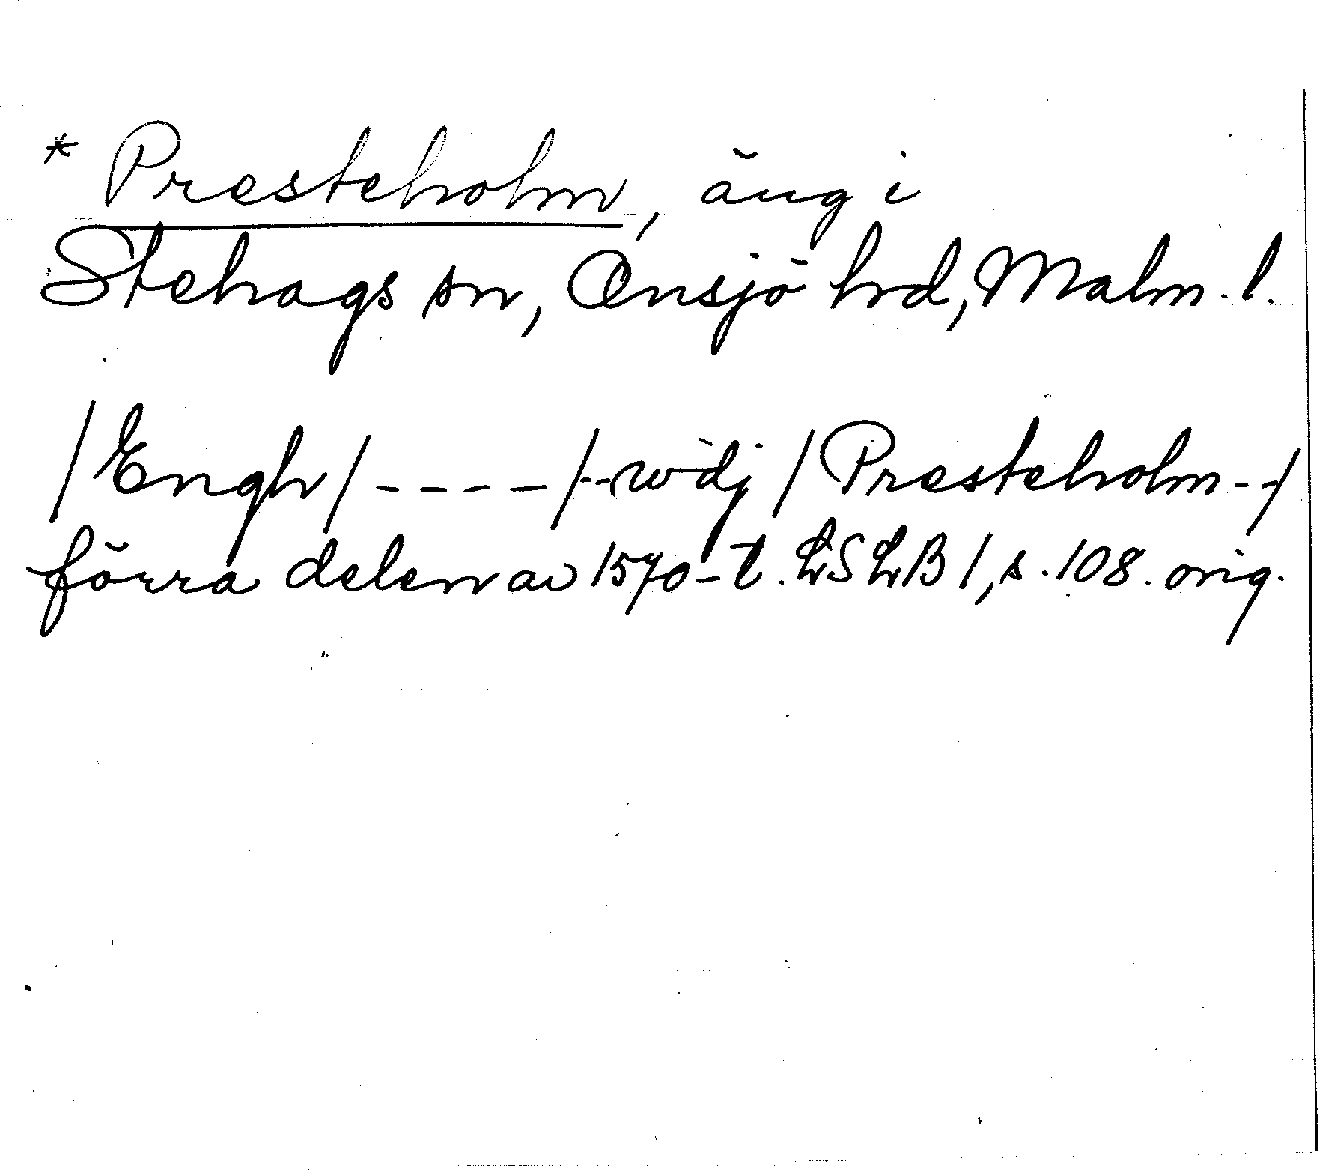 * Presteholm, äng i
Stehags sn, Onsjö hrd, Malm. l.
/Engh/ - - - - /- - wdj / Presteholm - -/
förra delen av 1570-t. LSLB 1, s. 108. orig.